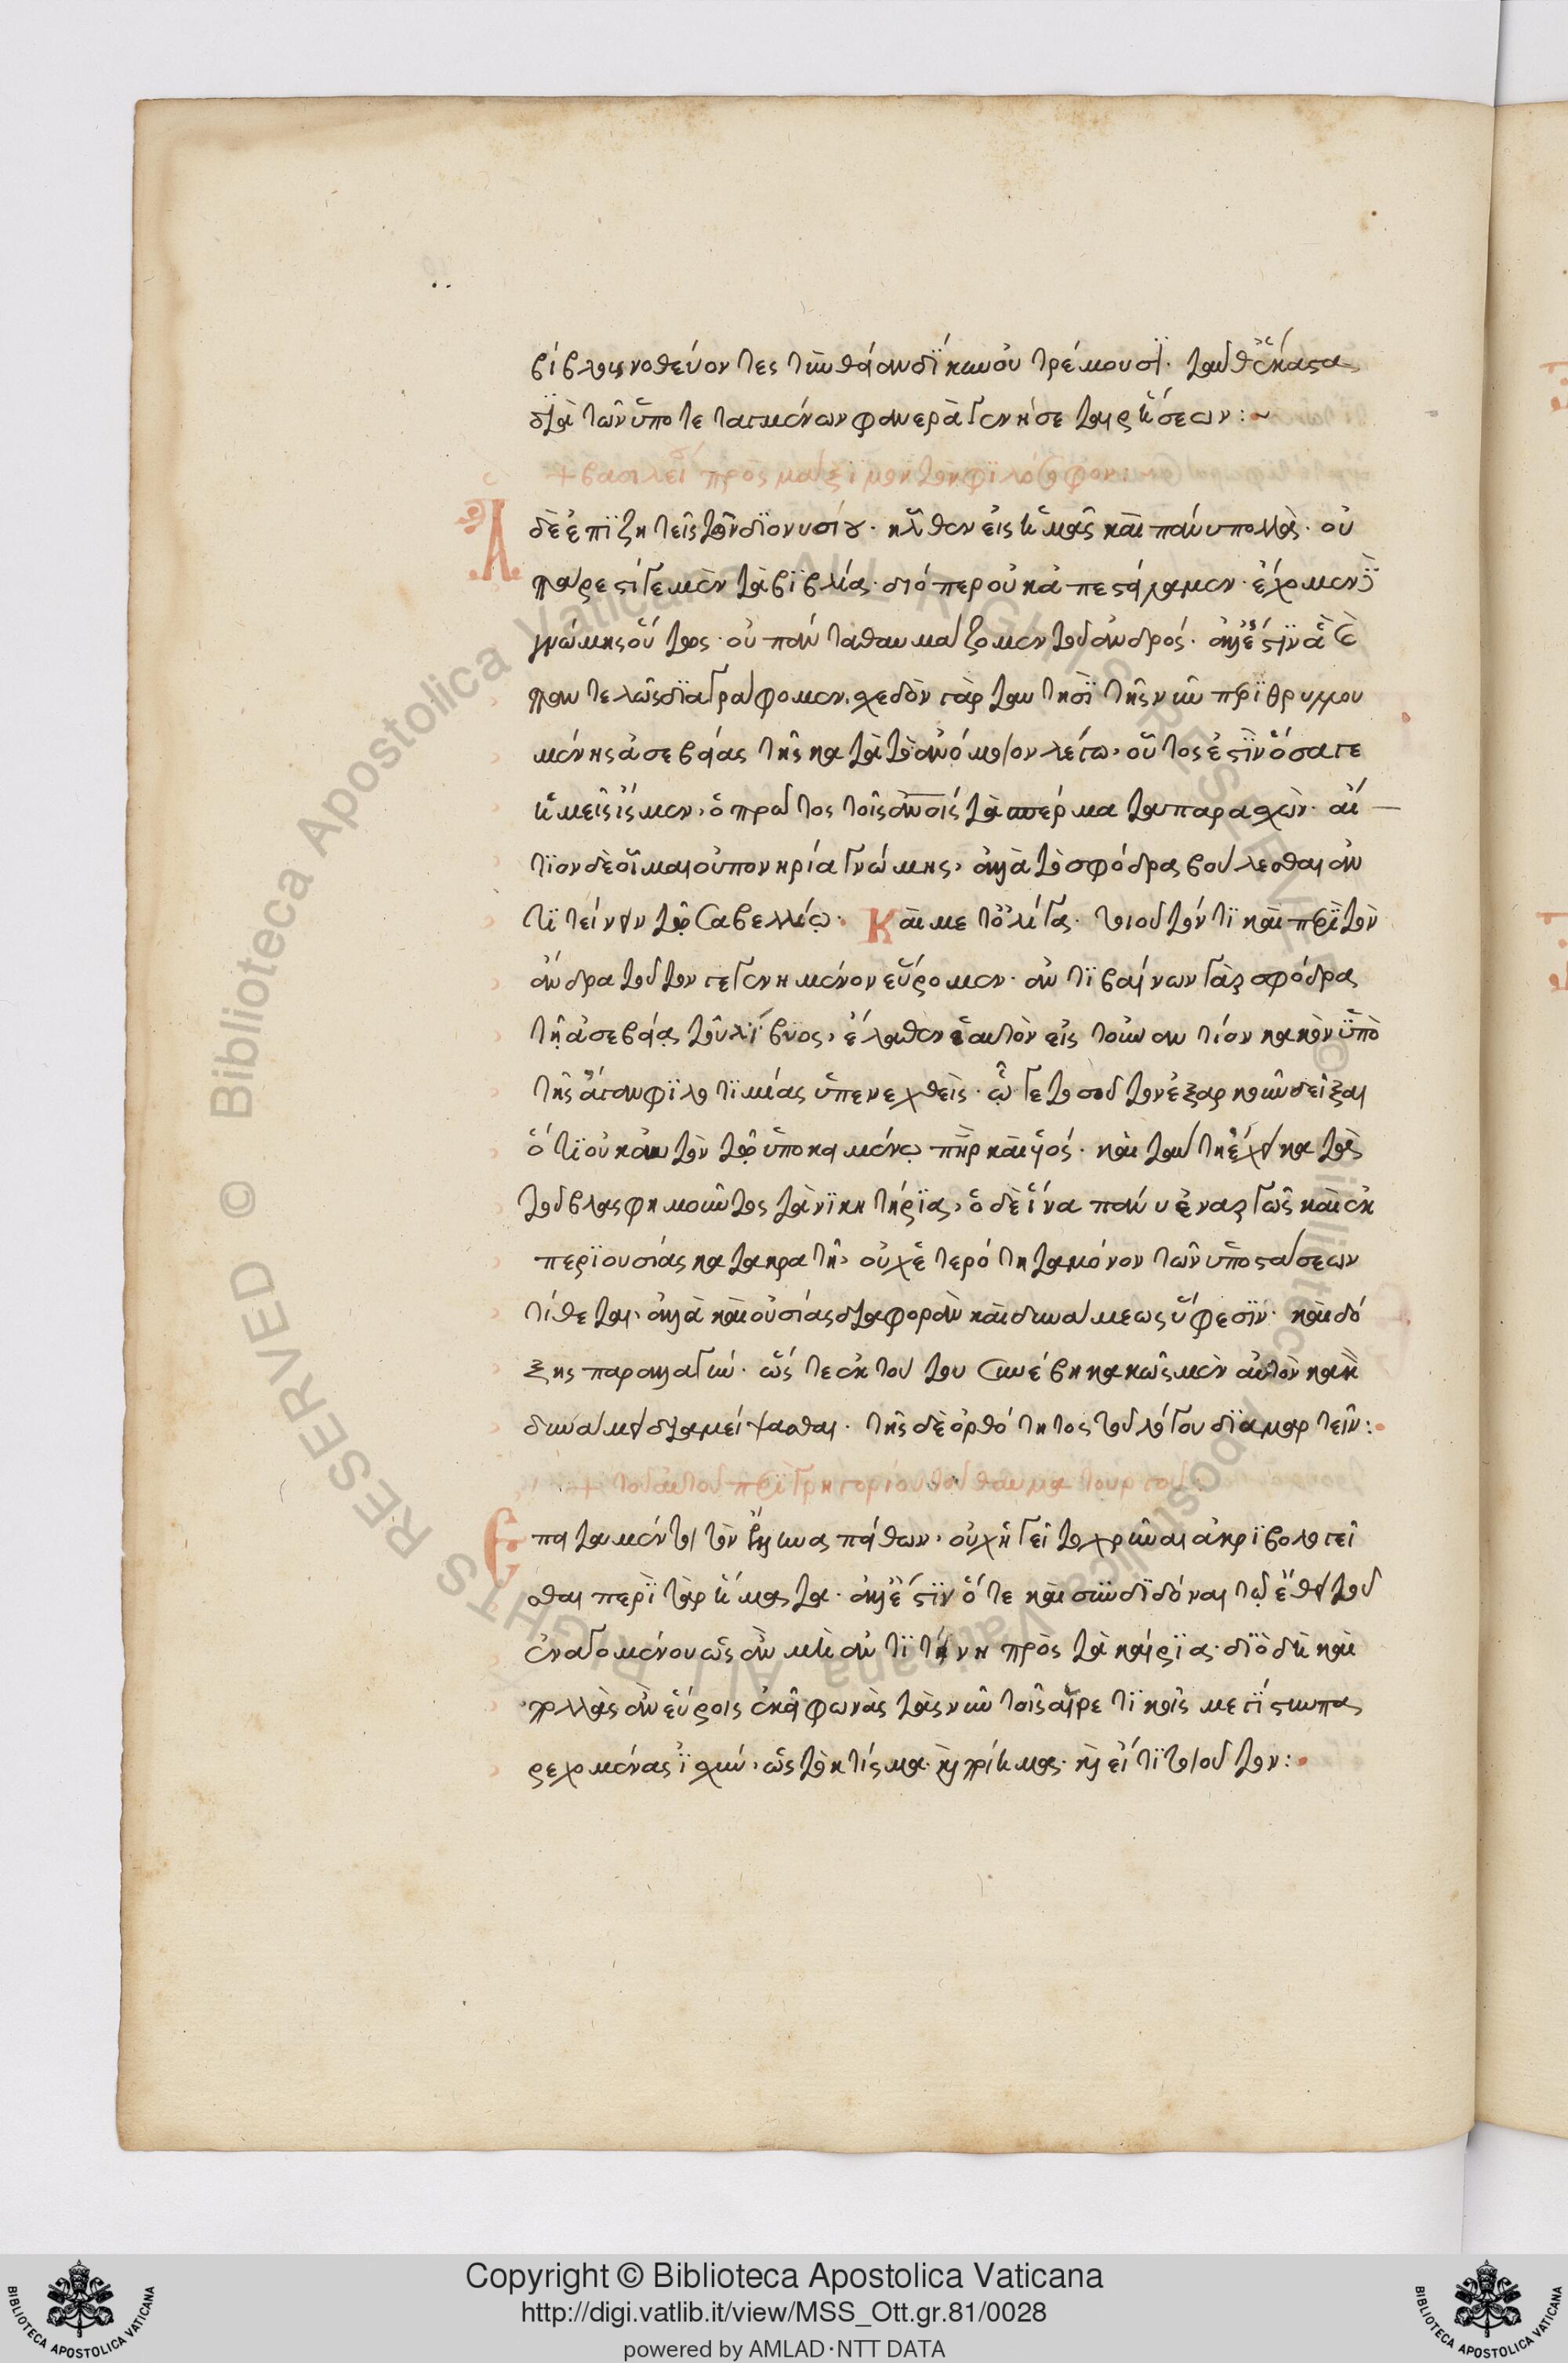 βίβλοις νοθεύοντες τὴν θείαν δίκην οὐ τρέμουσϊ· ταῦθ' ἕκαστα
διὰ τῶν ὑποτεταγμένων φανερὰ γενήσεται ῥήσεων :~
+ βασιλείου πρὸς μάξιμον τὸν φιλόσοφον :~
Ἃ δὲ ἐπιζητεῖς τῶν διονυσίου· ἦλθεν εἰς ἡμᾶς καὶ πάνυ πολλὰ· οὐ
πάρεστί γε μὲν τὰ βιβλία· διόπερ οὐκ ἀπεστάλαμεν· ἔχομεν δὲ
γνώμης οὕτως· οὐ πάντα θαυμάζομεν τοῦ ἀνδρός· ἀλλ' ἔστιν ἃ καὶ
παντελῶς διαγράφομεν, σχεδὸν γὰρ ταυτησὶ τῆς νῦν περιθρυλλου
μένης ἀσεβείας τῆς κατὰ τὸ ἀνόμοιον λέγω, οὗτος ἐστὶν ὅσα γε
ἡμεῖς ἴσμεν, ὁ πρῶτος τοῖς ἀνοις τὰ σπέρματα παρασχὼν· αἴ
τιον δὲ οἶμαι οὐ πονηρία γνώμης, ἀλλὰ τὸ σφόδρα βούλεσθαι ἀν
τιτείνειν τῷ Σαβελλίῳ· Καὶ μετ' ὀλίγα· τοιοῦτόν τι καὶ περὶ τὸν
ἄνδρα τοῦτον γεγενημένον εὕρομεν· ἀντιβαίνων γὰρ σφόδρα
τῇ ἀσεβείᾳ τοῦ λίβυος, ἔλαθεν ἑαυτὸν εἰς τοὐναντίον κακὸν ὑπὸ
τῆς ἄγαν φιλοτιμίας ὑπενεχθεὶς· ᾧ γε τοσοῦτον ἐξαρκοῦν δεῖξαι
ὅτι οὐ τὸν τῷ ὑποκειμένῳ πηρ καὶ υος· καὶ ταύτῃ ἔχειν κατὰ
τοῦ βλασφημοῦντος τὰ νικητήρια, ὁ δὲ ἵνα πάνυ ἐναργῶς καὶ ἐκ
περιουσίας κατακρατῇ, οὐχ ἑτερότητα μόνον τῶν ὑποστάσεων
τίθεται, ἀλλὰ καὶ οὐσίας διαφορὰν καὶ δυνάμεως ὕφεσιν· καὶ δό
ξης παραλλαγήν· ὥστε ἐκ τούτου συνέβη κακῶς μὲν αὐτὸν
δυνάμει διαμείψασθαι· τῆς δὲ ὀρθότητος τοῦ λόγου διαμαρτεῖν :
+ τοῦ αὐτοῦ περὶ γρηγορίου τοῦ θαυματουργοῦ :
Επειτα μέντοι τὸν ἕλληνα πείθων, οὐχ ἡγεῖτο χρῆναι ἀκριβολογεῖ
σθαι περὶ τὰ ῥήματα· ἀλλ' ἔστιν ὅτε καὶ συνδιδόναι τῷ ἔθει τοῦ
ἐναγομένου ὡς ἂν μὴ ἀντιτείνῃ πρὸς τὰ καίρια· διὸ δὴ καὶ
πολλὰς ἂν εὕροις ἐκεῖ φωνὰς τὰς νῦν τοῖς αἱρετικοῖς μεγίστην πα
ρεχομένας ἰσχύν, ὡς τὸ κτίσμα· καὶ ποίημα· καὶ εἴ τι τοιοῦτον :
Copyright © Biblioteca Apostolica Vaticana
http://digi.vatlib.it/view/MSS_Ott.gr.81/0028
powered by AMLAD·NTT DATA